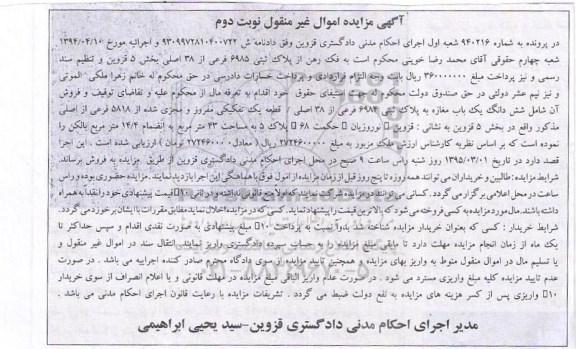 آگهی مزایده اموال غیر منقول نوبت دوم
در پرونده به شماره ۹۴۰۲۱۶ شعبه اول اجرای احکام مدنی دادگستری قزوین وفق دادنامه ش ۹۳۰۹۹۷۲۸۱۰۴۰۰۷۲۲ و اجرائیه مورخ ۱۳۹۴/۰۴/۱۰
شعبه چهارم حقوقی آقای محمد رضا خوینی محکوم است به فک رهن از پلاک ثبتی ۶۹۸۵ فرعی از ۳۸ اصلی بخش ۵ قزوین و تنظیم سند
رسمی و نیز پرداخت مبلغ ۳۶۰۰۰۰۰۰۰ ریال بابت وجه التزام قراردادی و پرداخت خسارات دادرسی در حق محکوم له خانم زهرا ملکی الموتی
و نیز نیم عشر دولتی در حق صندوق دولت محکوم له جهت استیفای حقوق خود اقدام به تعرفه مال از محکوم علیه و تقاضای توقیف و فروش
آن شامل شش دانگ یک باب مغازه به پلاک ثبتی ۶۹۸۴ فرعی از ۳۸ اصلی قطعه یک تفکیکی مفروز و مجزی شده از ۵۸۱۸ فرعی از اصلی
مذکور واقع در بخش ۵ قزوین به نشانی : قزوین نوروزیان حکمت ۶۸ پلاک ۵ به مساحت ۴۳ متر مربع به انضمام ۱۴/۴ متر مربع بالکن را
نموده است که بر اساس نظریه کارشناس ارزش ملک مزبور به مبلغ ۲۷۲۴۶۰۰۰۰۰ ریال ( معادل ۲۷۲۴۶۰۰۰۰ تومان ) ارزیابی شده است . این اجرا
قصد دارد در تاریخ ۱۳۹۵/۰۳/۰۱ روز شنبه راس ساعت ۹ صبح در محل اجرای احکام مدنی دادگستری قزوین از طریق مزایده به فروش برساند.
شرایط مزایده : طالبین و خریداران می توانند همه روزه تا پنج روز قبل از زمان مزایده از اموال فوق با هماهنگی این اجرا بازدید نمایند . مزایده حضوری بوده و راس
ساعت در محل اعلامی برگزار می گردد . کسانی می توانند در مزایده شرکت نمایند که اولاً وجه قانونی داشته و در ثانی ۱۰ قیمت پیشنهادی خود را نقداً به همراه
داشته باشند.مال مورد مزایده به کسی فروخته می شود که بالاترین قیمت را پیشنهاد نماید. کسی که در مزایده اخلال نماید مطابق مقررات با ایشان برخورد می گردد.
شرایط خریدار : کسی که بعنوان خریدار مزایده شناخته شد بدواً نسبت به پرداخت ۱۰ مبلغ پیشنهادی به صورت نقدی اقدام و سپس حداکثر تا
یک ماه از زمان انجام مزایده مهلت دارد تا مابقی مبلغ مزایده را به حساب سپرده دادگستری واریز نمایند . انتقال سند در اموال غیر منقول و
یا تسلیم مال در اموال منقول منوط به واریز بهای مزایده و همچنین تایید مزایده از سوی دادگاه محترم صادر کننده اجراییه می باشد . در صورت
عدم تایید مزایده کلیه مبلغ واریزی مسترد می شود . در صورت عدم واریز الباقی مبلغ مزایده در مهلت قانونی و یا اعلام انصراف از سوی خریدار
۱۰ واریزی پس از کسر هزینه های مزایده به نفع دولت ضبط می گردد . تشریفات مزایده با رعایت قانون اجرای احکام مدنی می باشد .
مدیر اجرای احکام مدنی دادگستری قزوین-سید یحیی ابراهیمی